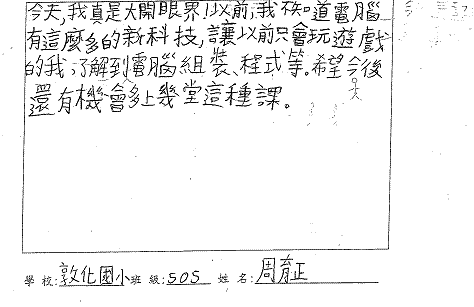 今天,我真是大開眼界!以前,我不知道電腦
有這麼多的新科技,讓以前只會玩遊戲
的我,了解到電腦組裝、程式等。希望今後
還有機會多上幾堂這種課。
學校:敦化國小班級:505 姓名:周育正